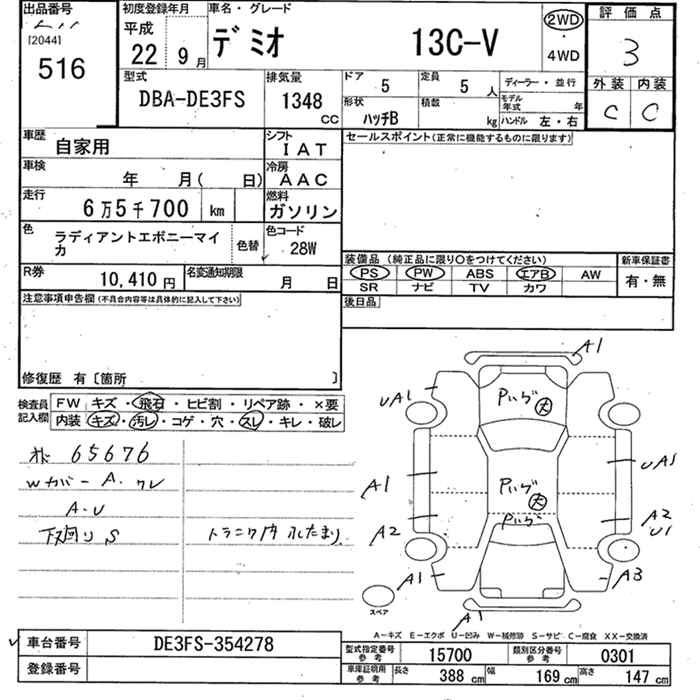 出品番号
[2044]
516
初度登録年月
平成
22 9月
車名・グレード
デミオ 13C-V
2WD
・
4WD
評価点
3
外装 内装
C C
型式
DBA-DE3FS
排気量
1348
CC
ドア
5
定員
5人
ディーラー・並行
形状
ハッチB
積載
kg
モデル年式 年
ハンドル 左・右
車歴
自家用
シフト
IAT
セールスポイント(正常に機能するものに限ります)
車検
年 月( 日)
冷房
AAC
走行
6万5千700 km
燃料
ガソリン
色
ラディアントエボニーマイカ
色替
色コード
28W
装備品(純正品に限り○をつけてください)
新車保証書
PS PW ABS エアB AW
SR ナビ TV カワ
有・無
R券
10,410円
名変通知期限
月 日
後日品
注意事項申告欄(不具合内容等は具体的に記入して下さい)
修復歴 有〔箇所 〕
検査員記入欄
FW キズ・飛石・ヒビ割・リペア跡・×要
内装・キズ・汚レ・コゲ・穴・スレ・キレ・破レ
65676
Wカバー A.ワレ
A.U
下廻り S
トランク内 水たまり
A1
UA1
Pいが 大
A1
UA1
Pいが 大
A2
Pいが
A2
U1
A1
A3
A1
スペア
A－キズ E－エクボ U－凹み W－補修跡 S－サビ C－腐食 XX－交換済
車台番号
DE3FS-354278
登録番号
型式指定番号参考
15700
類別区分番号参考
0301
車庫証明用参考
長さ 388cm 幅 169cm 高さ 147cm